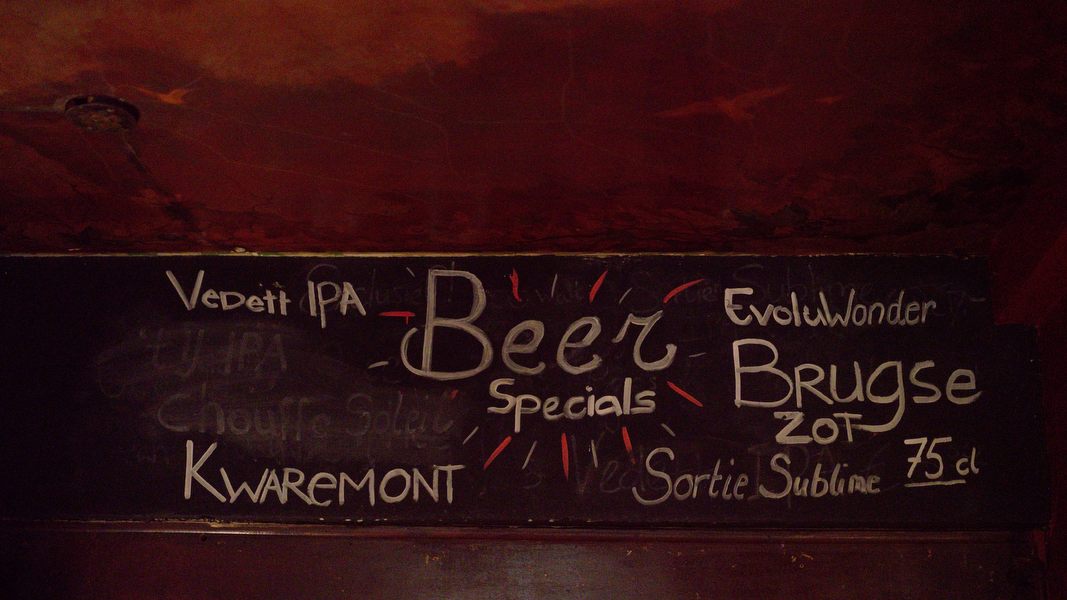 Vedett IPA
Kwaremont
Beer
Specials
EvoluWonder
Brugse
Zot
Sortie Sublime 75 cl
Chouffe Soleil